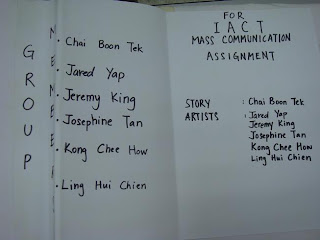 GROUP
MEMBERS
· Chai Boon Tek
· Jared Yap
· Jeremy King
· Josephine Tan
· Kong Chee How
· Ling Hui Chien
FOR
IACT
MASS COMMUNICATION
ASSIGNMENT
STORY : Chai Boon Tek
ARTISTS : Jared Yap
Jeremy King
Josephine Tan
Kong Chee How
Ling Hui Chien